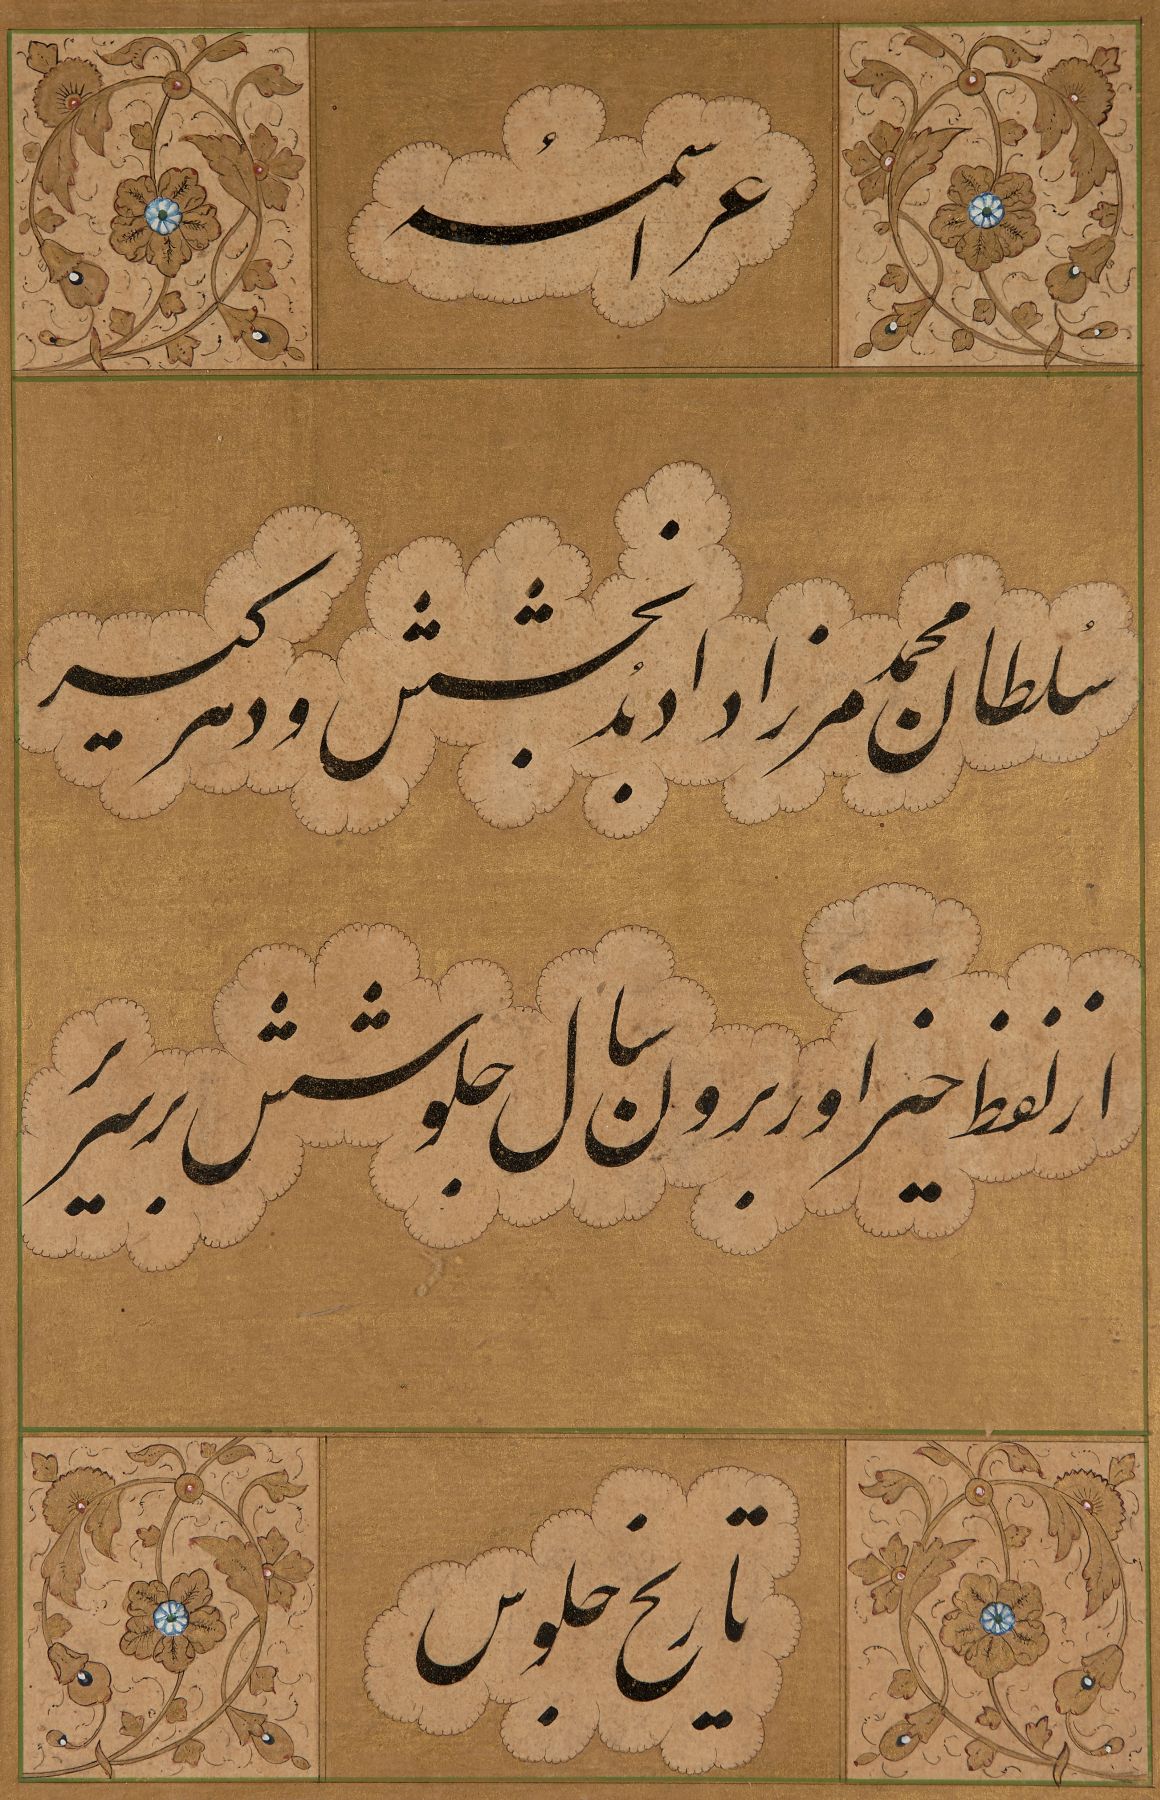 عز اسمهُ
سُلطان محمد مرزا داد بدُ بخشش و دهر کیر
از لفظ خیر اور برون سال جلوسش بر سریر
تاریخ جلوس